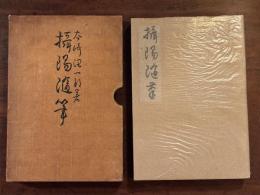 谷崎潤一郎著
摂陽随筆
摂陽随筆